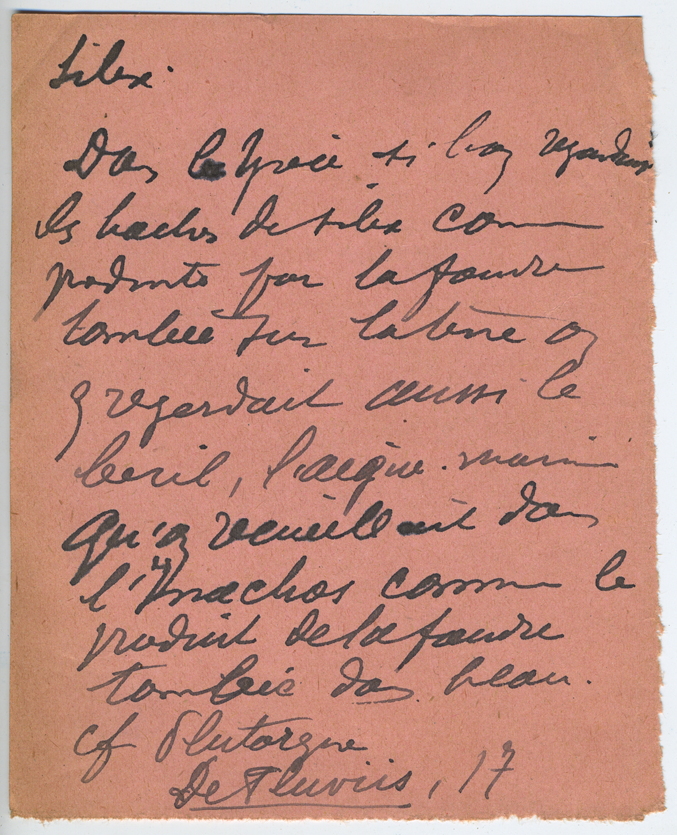 Silex.
Dans la Grèce si l'on regardait
les haches de silex comme
produites par la foudre
tombée sur la terre on
y regardait aussi le
beril, l'aigue-marine
qu'on recueillait dans
l'Inachos comme le
produit de la foudre
tombée dans l'eau.
cf Plutarque
De Fluviis, 17